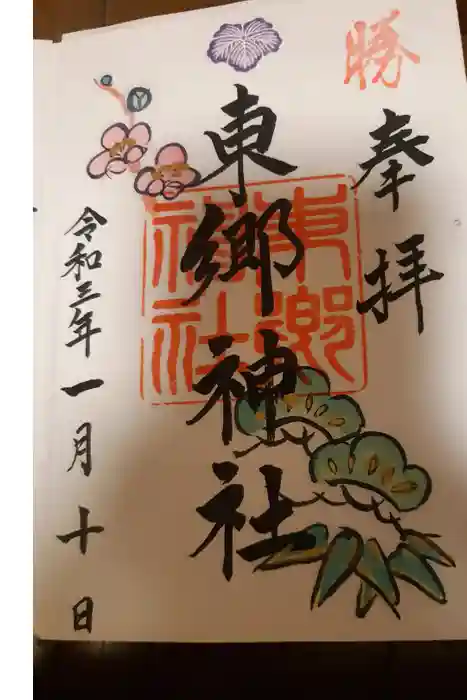 勝
奉拝
東郷神社
東郷神社
令和三年一月十日